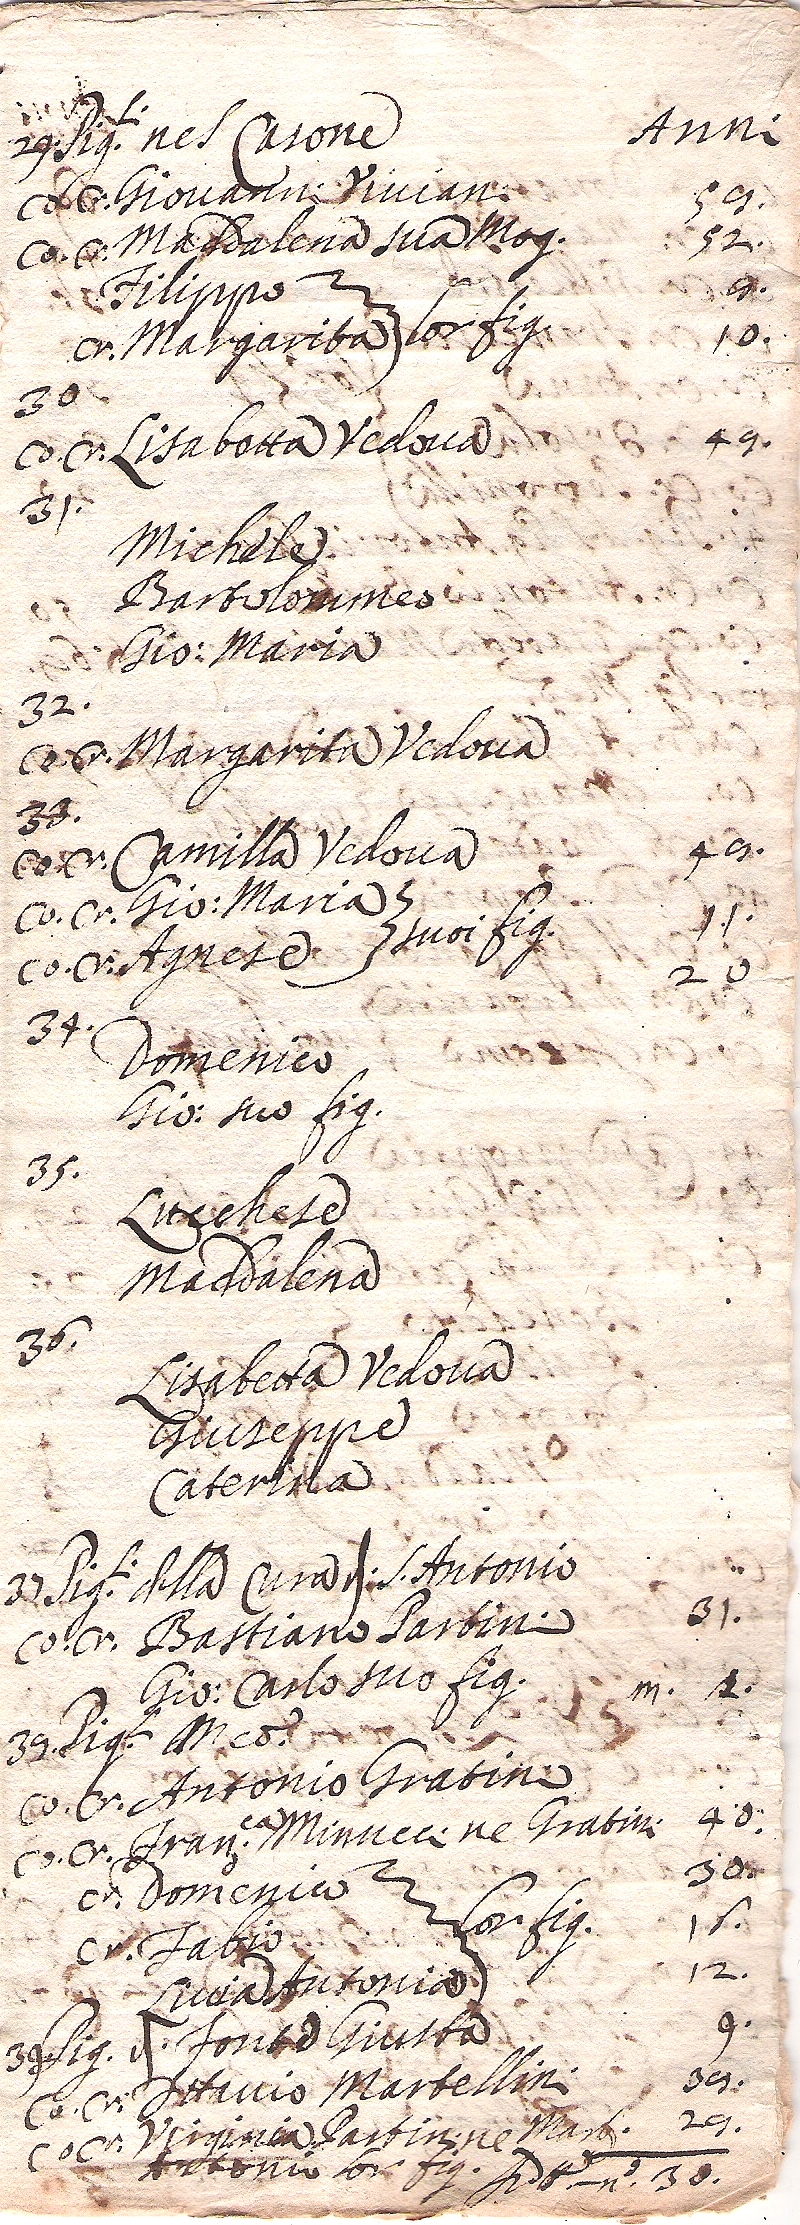 29. Pig.li nel Casone Anni
Co. Cr. Giovanni Viviani 59.
Co. Cr. Maddalena sua Mog. 52.
Filippo 9.
Cr. Margarita } lor fig. 10.
30
Co. Cr. Lisabetta Vedova 49.
31.
Michele
Bartolommeo
Gio: Maria
32.
Co. Cr. Margarita Vedova
33.
Co. Cr. Camilla Vedova 49.
Co. Cr. Gio: Maria } suoi fig. 11.
Co. Cr. Agnese 20
34.
Domenico
Gio: suo fig.
35.
Lucchese
Maddalena
36.
Lisabetta Vedova
Giuseppe
Caterina
37 Pig.li della Cura di S. Antonio
Co. Cr. Bastiano Partini 31.
Gio: Carlo suo fig. m. 1.
39. Pig.li
Co. Cr. Antonio Gratini
Co. Cr. Fran.ca Minucci ne Gratini 40.
Cr. Domenico 30.
Cr. Fabio } lor fig. 16.
Lucia Antonia 12.
39 Pig. di Fonte Giusta 9.
Co. Cr. Ottavio Martellini 39.
Co. Cr. Virginia Partini ne Mart. 29.
Antonio lor fig. n.o 30.